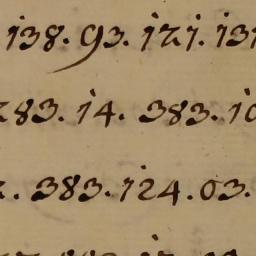 138. 93. 121. 131
283. 14. 383. 10
. 383. 124. 03.